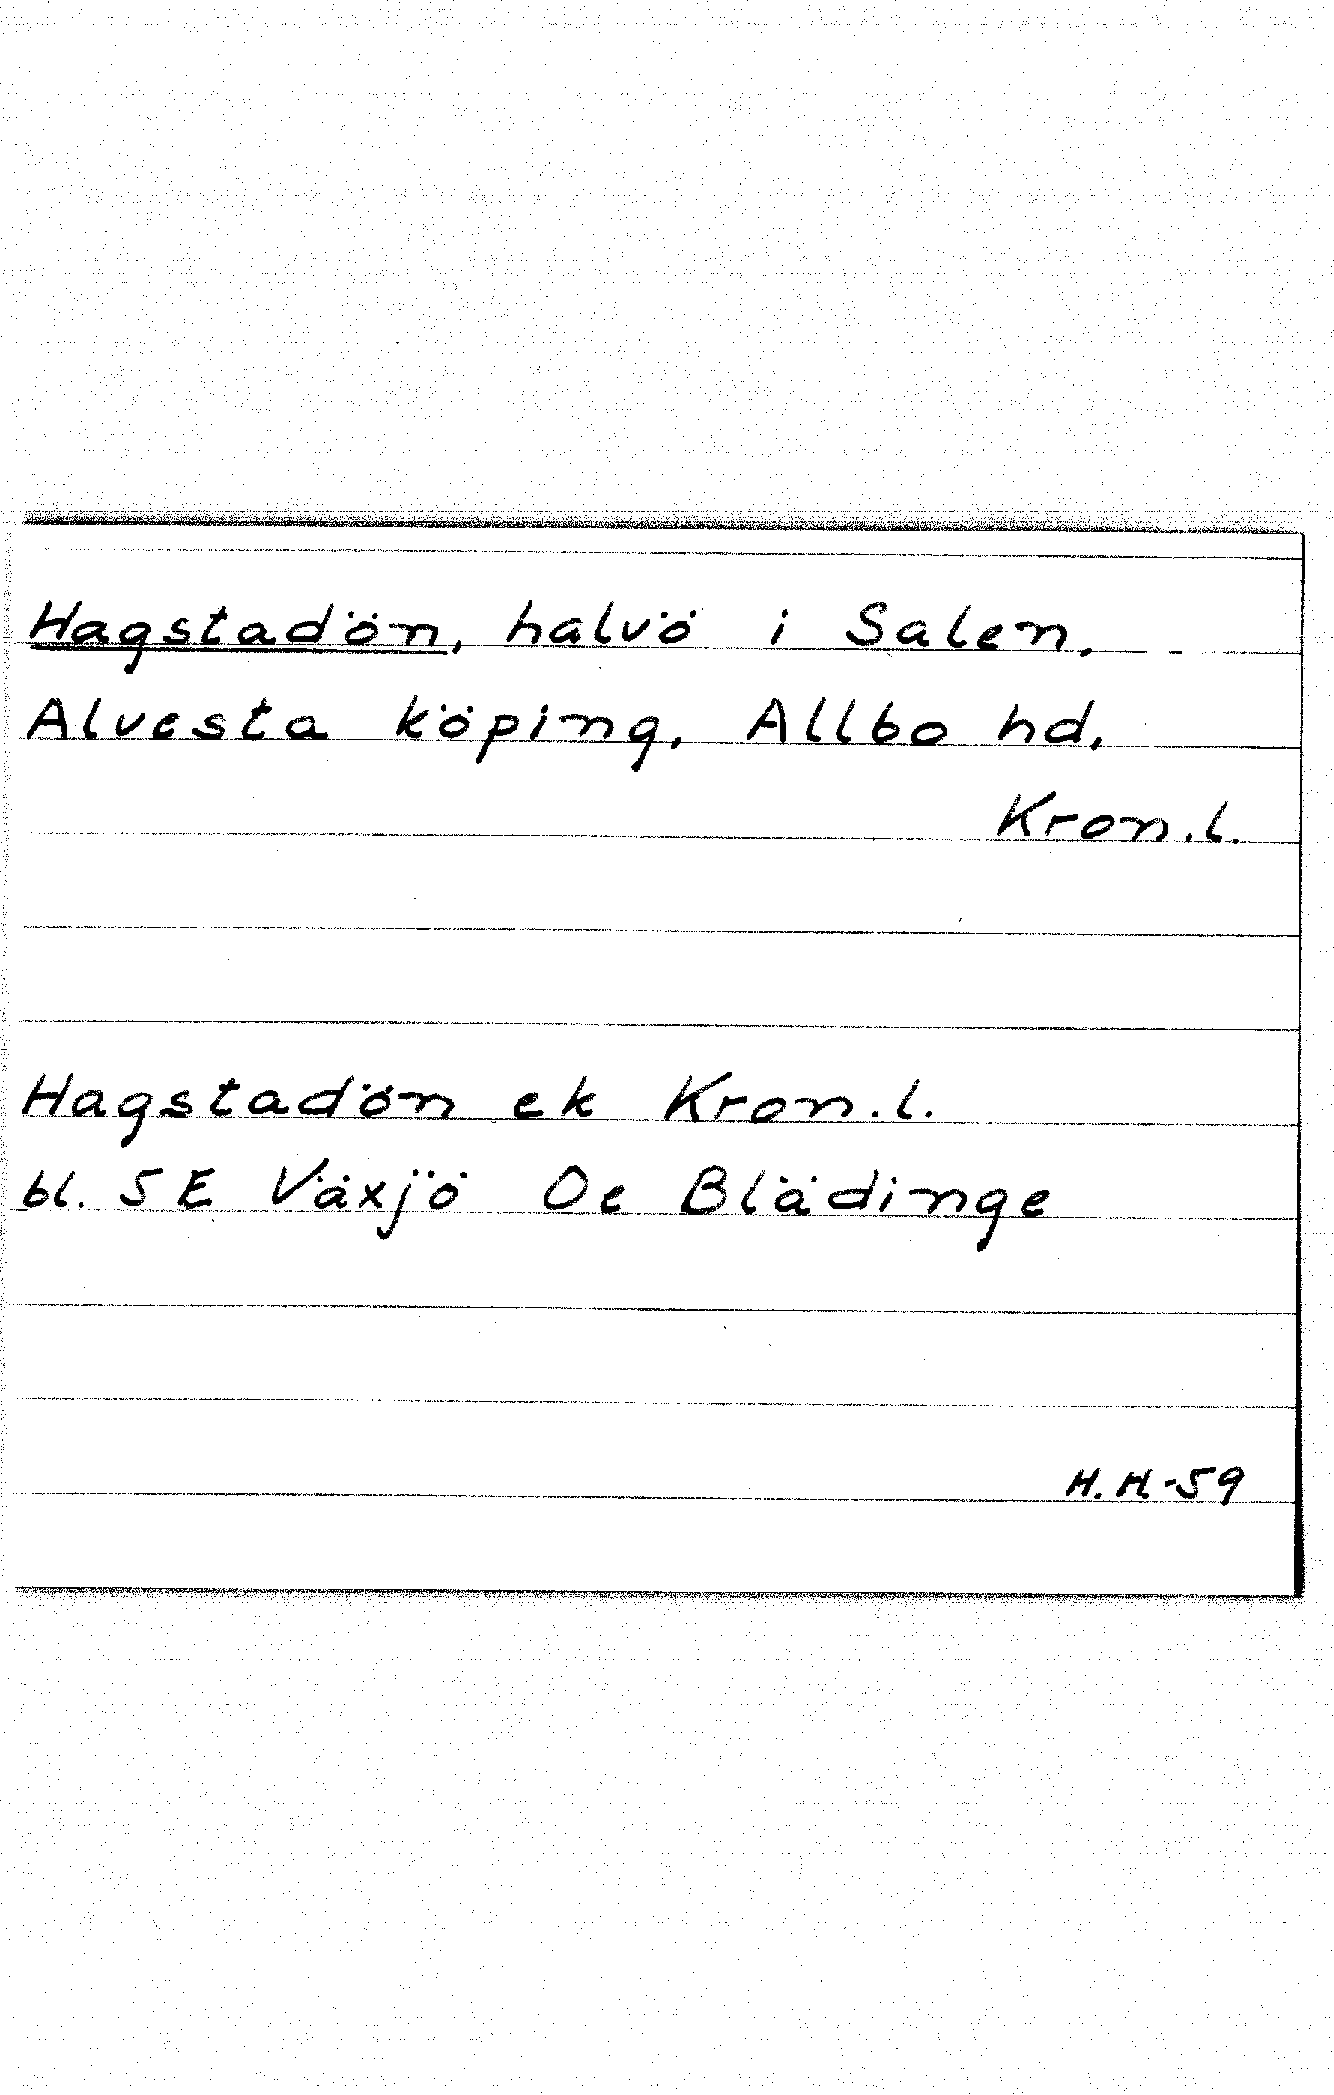 Hagstadön, halvö i Salen,
Alvesta köping, Allbo hd,
Kron.l.
Hagstadön ek Kron.l.
bl. 5E Växjö 0e Blädinge
H.H-59